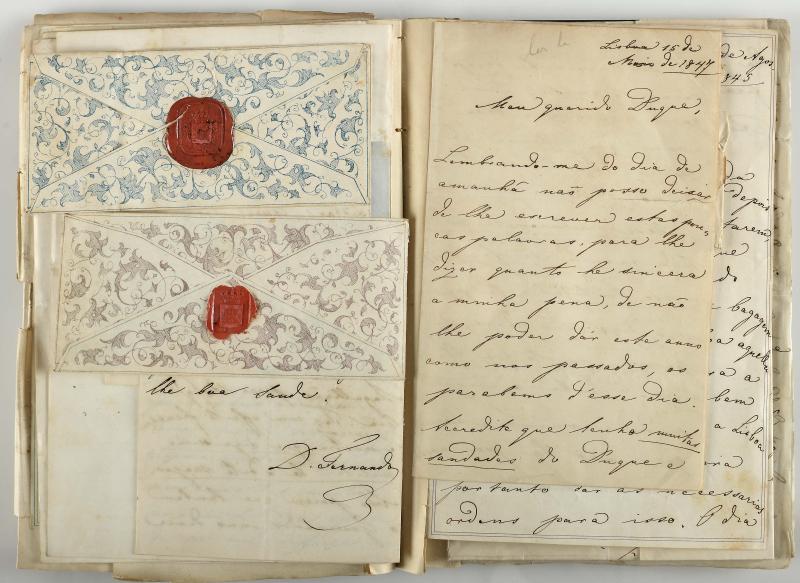 lhe boa saude.
D. Fernando
Lisboa 15 de
Maio de 1847
Meu querido Duque,
Lembrando-me do dia de
amanhã não posso deixar
de lhe escrever estas pou-
cas palavras, para lhe
dizer quanto he sincera
a minha pena, de não
lhe poder dár este anno
como nos passados, os
parabems d'esse dia.
Acredite que tenho muitas
saudades do Duque e
de Agos
1845
depois
tarem,
que
do
bagagem
aquella
a
bem
a Lisboa
portanto dar as necessarias
ordens para isso. O dia